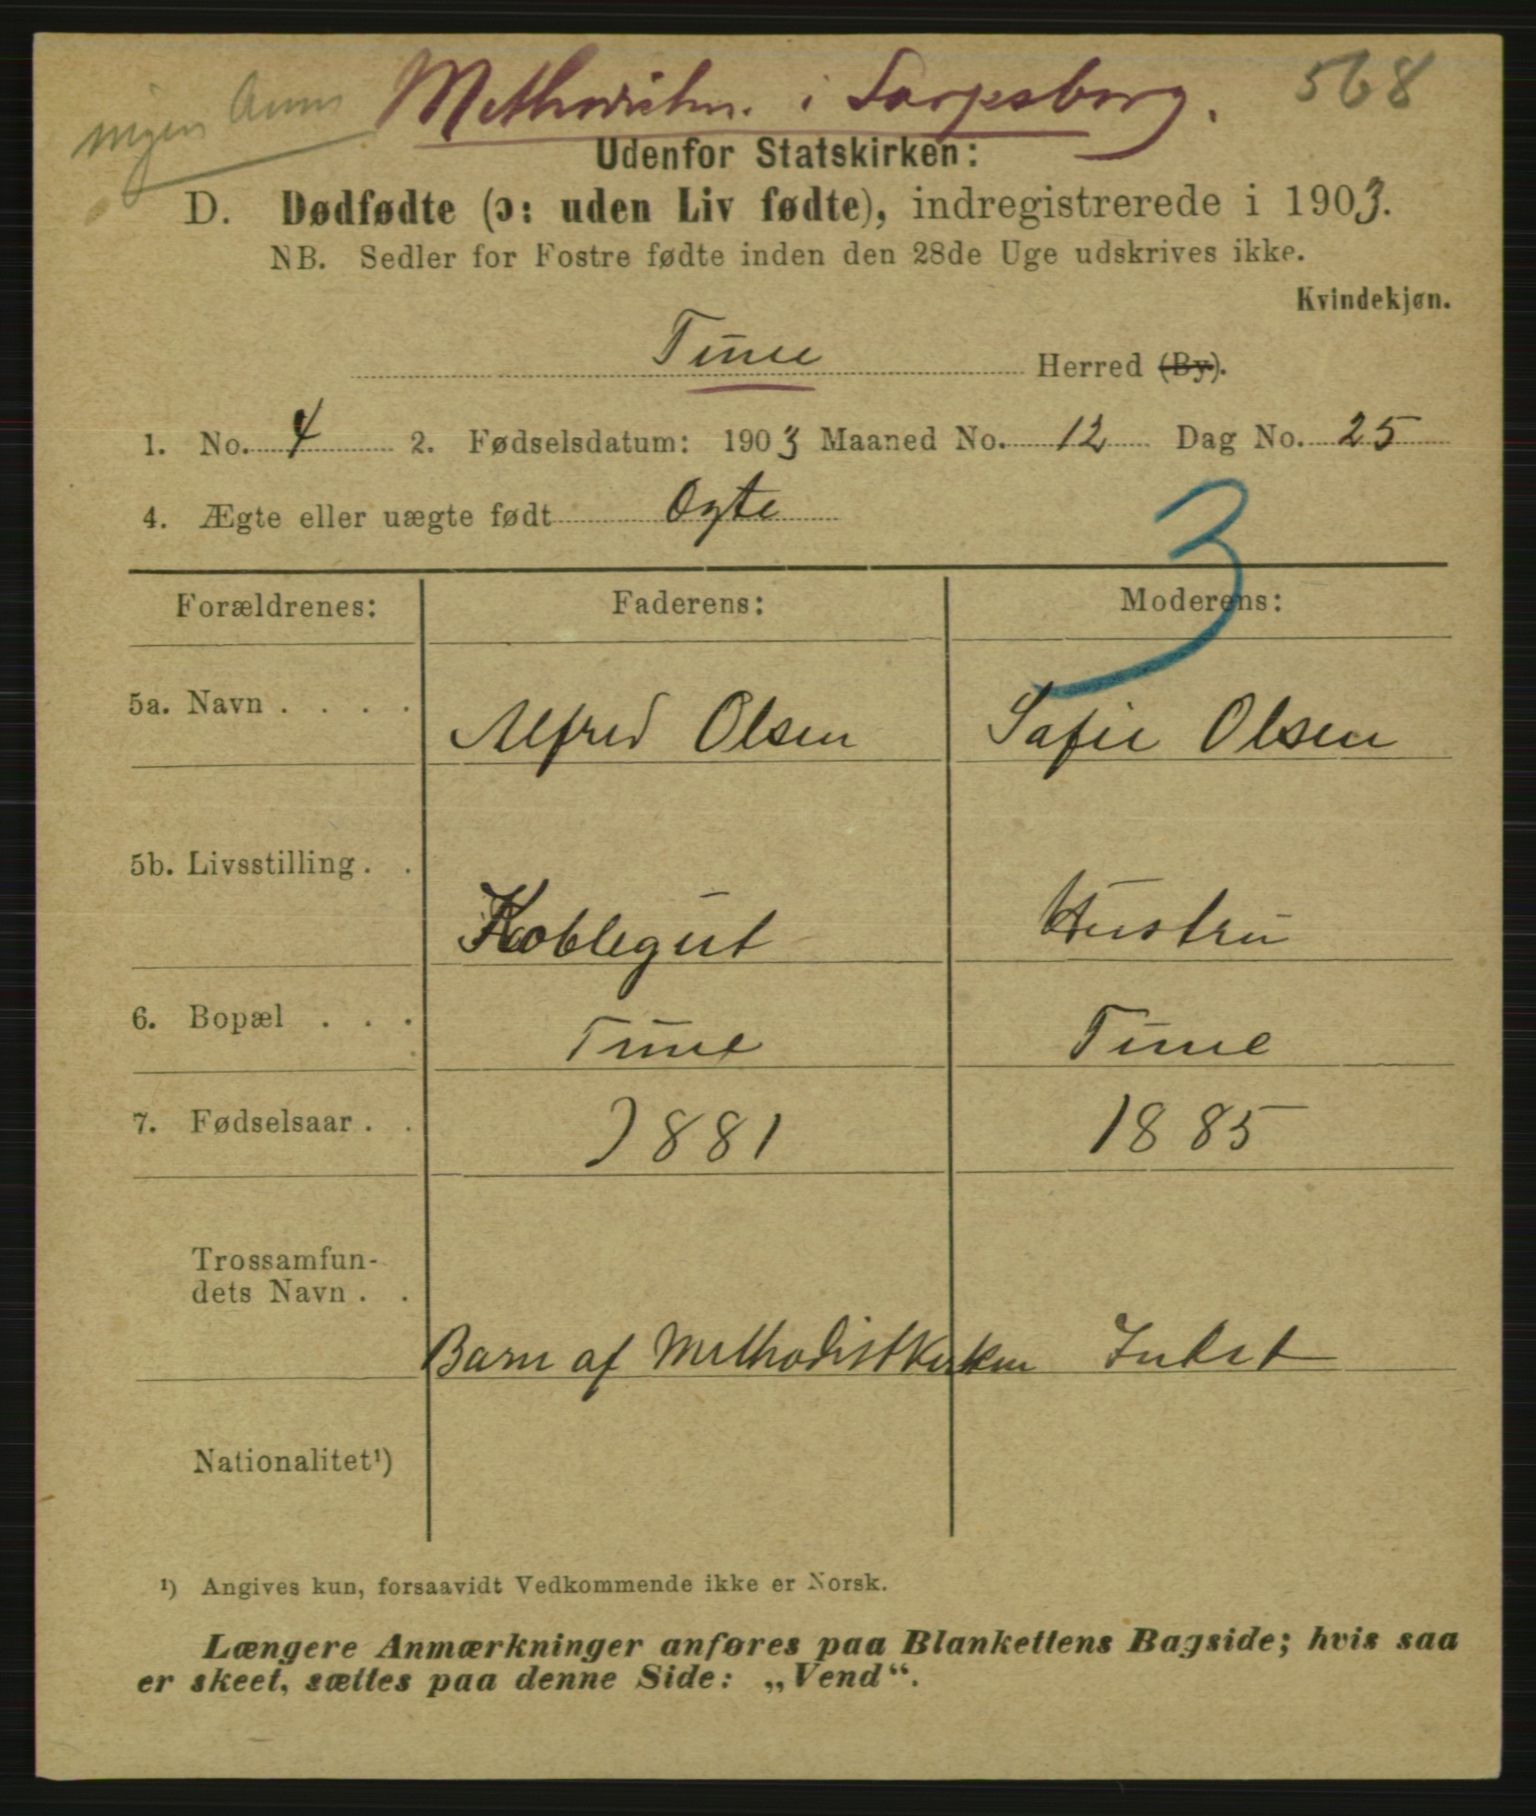 ingen Anm
Methodistm. i Sarpsborg.
568
Udenfor Statskirken:
D. Dødfødte (ɔ: uden Liv fødte), indregistrerede i 1903.
NB. Sedler for Fostre fødte inden den 28de Uge udskrives ikke.
Kvindekjøn.
Tune Herred (By).
1. No. 4 2. Fødselsdatum: 1903 Maaned No. 12 Dag No. 25
4. Ægte eller uægte født Ægte
3
Forældrenes: Faderens: Moderens:
5a. Navn . . . . Alfred Olsen Safie Olsen
5b. Livsstilling . . Koblegut Hustru
6. Bopæl . . . Tune Tune
7. Fødselsaar . . 1881 1885
Trossamfun-
dets Navn . . Barn af Methodistkirken Intet
Nationalitet¹)
¹) Angives kun, forsaavidt Vedkommende ikke er Norsk.
Længere Anmærkninger anføres paa Blankettens Bagside; hvis saa
er skeet, sættes paa denne Side: „Vend“.